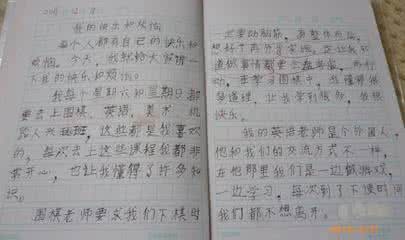 我的快乐和烦恼
每个人都有自己的快乐和
烦恼。今天,我就给大家说一
下我的快乐和烦恼。
我每个星期六和星期日都
要去上围棋、英语、美术、机
器人兴趣班,这些都是我喜欢
的,每次去上这些课程我都非
常开心,也让我懂得了许多知
识。
围棋老师要求我们下棋时
一定要动脑筋,看整体应法,
想好了再
道做事情都要
动,在学习围棋中,我懂得很
多道理,让我学到很多,我很
快乐。
我的英语老师是个外国人,
他和我们的交流方式不一样,
在他那里我们是一边做游戏,
一边学习,每次到了下课时间
我们都不想离开。